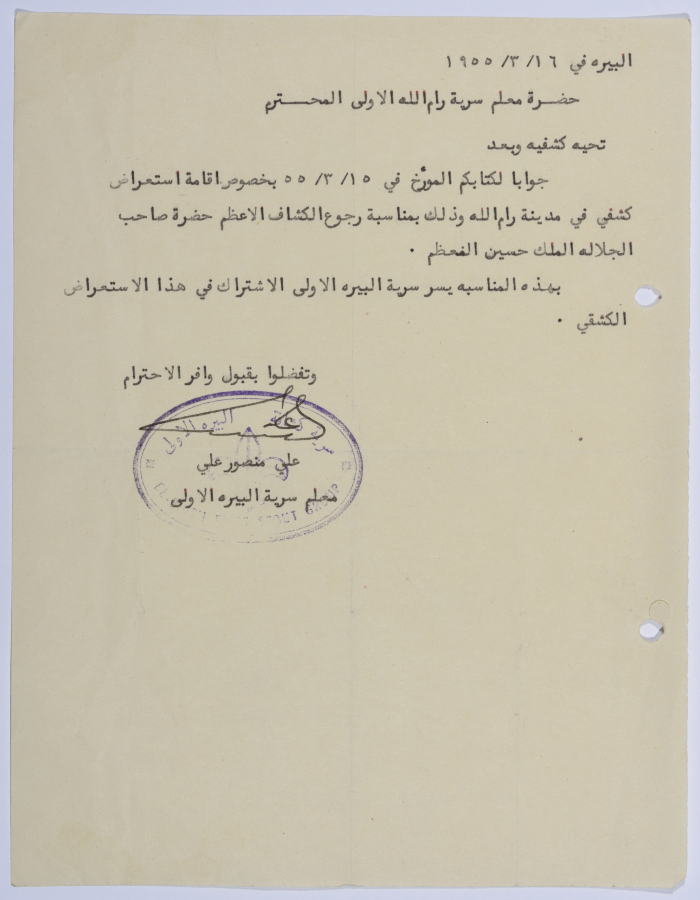 البيره في ١٦ /٣/ ١٩٥٥
حضـرة معلم سرية رام الله الاولى المحـــترم
تحيه كشفيه وبعد
جوابا لكتابكم المورّخ في ١٥ /٣/ ٥٥ بخصوص اقامة استعراض
كشفي في مدينة رام الله وذلك بمناسبة رجوع الكشاف الاعظم حضرة صاحب
الجلاله الملك حسين المعظم ٠
بهذه المناسبه يسر سرية البيره الاولى الاشتراك في هذا الاستعراض
الكشفي ٠
وتفضلوا بقبول وافر الاحترام
البيره الاولى
علي منصور علي
معلم سرية البيره الاولى
SCOUT GROUP